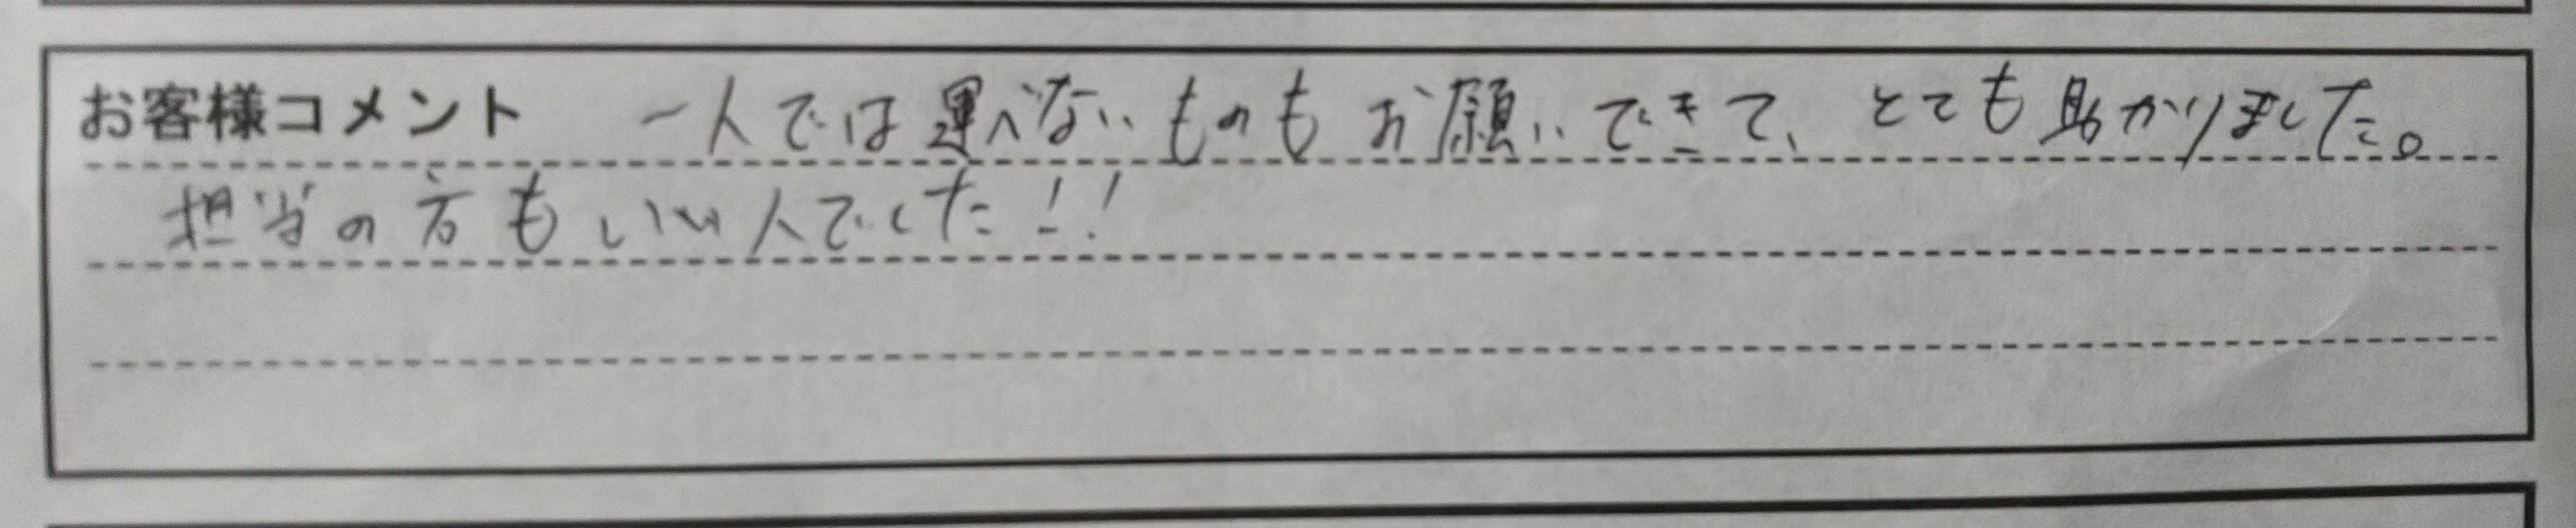 お客様コメント 一人では運べないものもお願いできて、とても助かりました。
担当の方もいい人でした!!